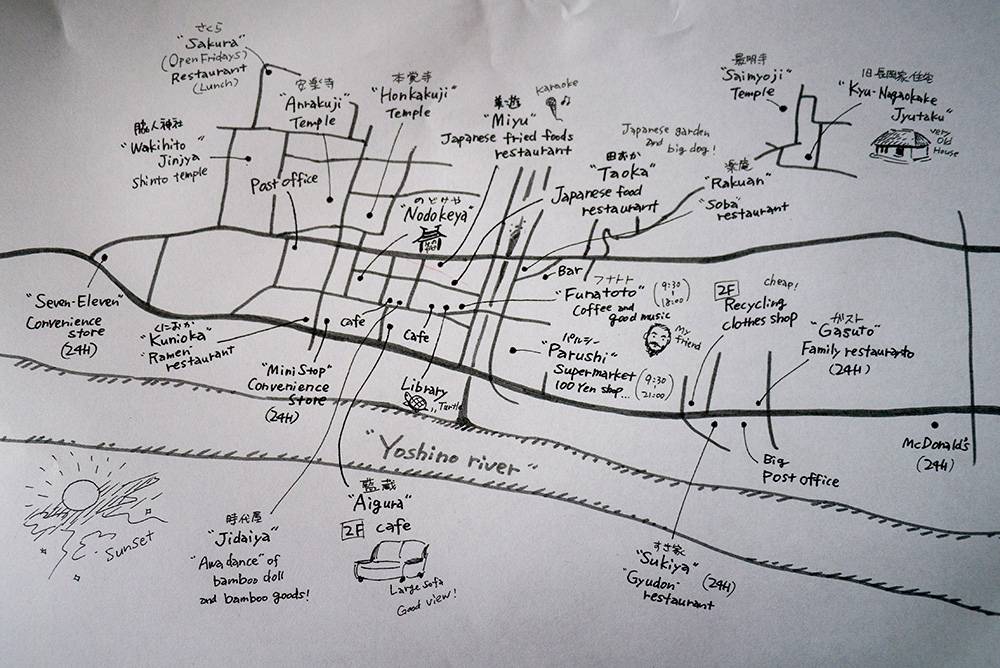 さくら
"Sakura"
(Open Fridays)
Restaurant
(Lunch)
安楽寺
"Anrakuji"
Temple
本覚寺
"Honkakuji"
Temple
Karaoke
"Miyu"
Japanese fried foods
restaurant
最明寺
"Saimyoji"
Temple
旧長岡家住宅
"Kyu-Nagaokake
Jyutaku"
very
Old
House
脇人神社
"Wakihito
Jinjya
Shinto temple
Post office
のどけや
"Nodokeya"
田おか
"Taoka"
Japanese food
restaurant
Japanese garden
and big dog!
楽庵
"Rakuan"
"Soba"
restaurant
Bar
"Seven-Eleven"
Convenience
store
(24H)
くにおか
"Kunioka"
"Ramen"
restaurant
"Mini Stop"
Convenience
Store
(24H)
cafe
Cafe
Library
Turtle
フナトト
"Funatoto"
Coffee and
good music
(9:30
18:00)
My
friend
パルシー
"Parushi"
Supermarket
100 Yen shop...
(9:30
21:00)
2F
cheap!
Recycling
clothes shop
ガスト
"Gasuto"
Family restauranto
(24H)
McDonald's
(24H)
Big
Post office
"Yoshino river"
Sunset
時代屋
"Jidaiya"
"Awa dance" of
bamboo doll
and bamboo goods!
藍蔵
"Aigura"
2F cafe
Large sofa
Good view!
すき家
"Sukiya" (24H)
"Gyudon"
restaurant